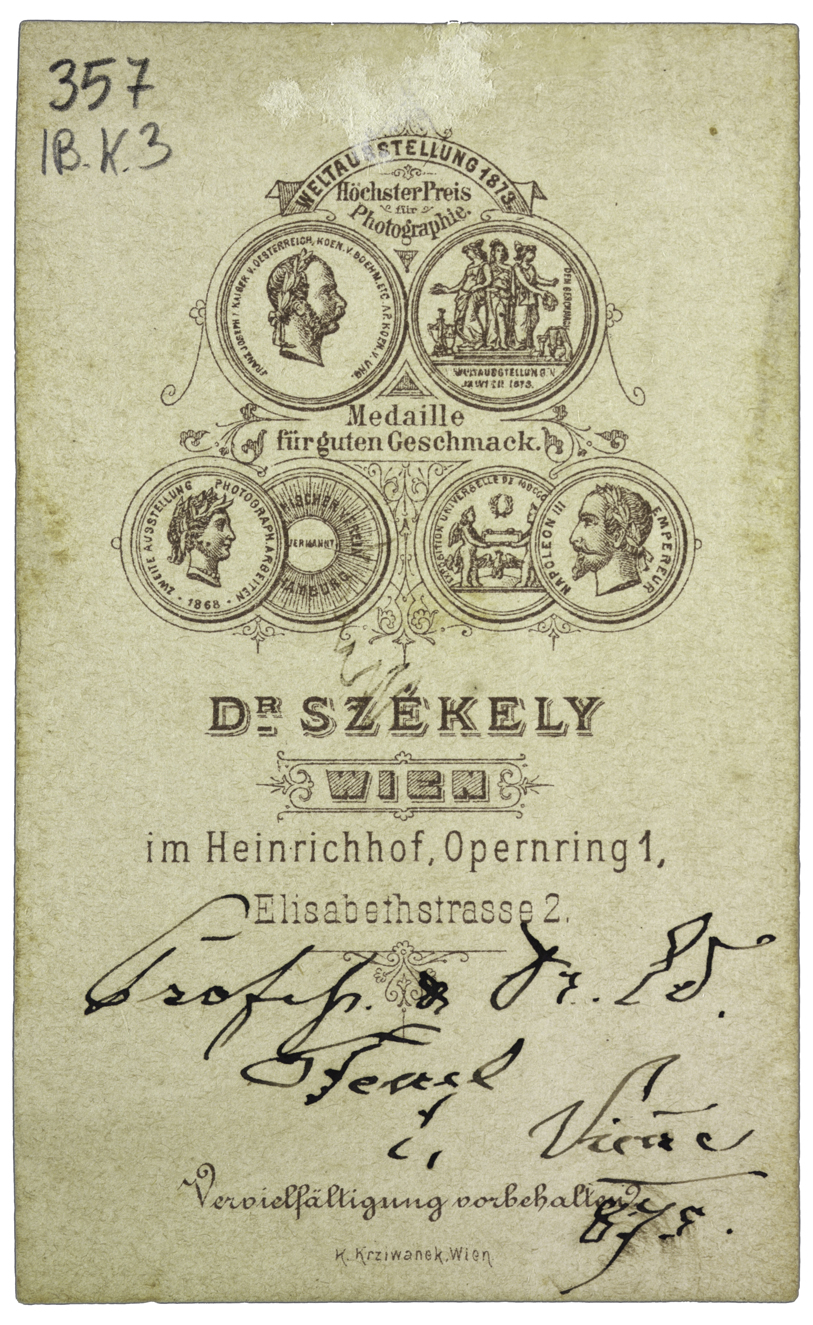 357
IB. K. 3
WELTAUSSTELLUNG 1873.
Höchster Preis
für
Photographie.
FRANZ JOSEPH I KAISER V. OESTERREICH, KOEN. V. BOEHM. ETC. AP. KOEN. V. UNG.
WELTAUSSTELLUNG
WIEN 1873.
Medaille
für guten Geschmack.
ZWEITE AUSSTELLUNG PHOTOGRAPH. ARBEITEN
- 1868 -
HAMBURG
EXPOSITION UNIVERSELLE DE
NAPOLEON III EMPEREUR
DR. SZÉKELY
WIEN
im Heinrichhof, Opernring 1,
Elisabethstrasse 2.
Dr. Ed.
à Vienne
Vervielfältigung vorbehalten
875.
K. Krziwanek, Wien